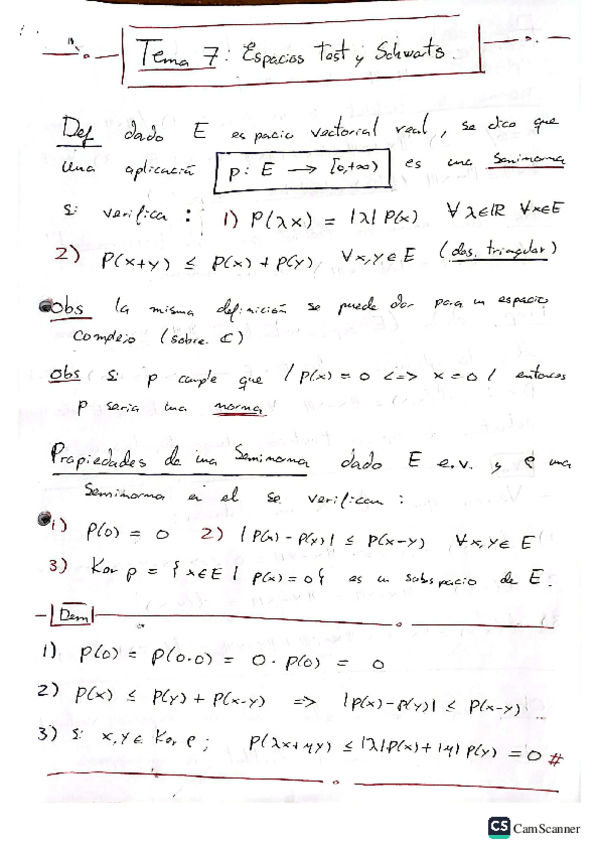 Tema 7: Espacios Test y Schwarts.
Def dado E espacio vectorial real, se dice que
una aplicación p: E → [0,+∞) es una Seminorma
si verifica: 1) P(λx) = |λ| P(x) ∀λ∈ℝ ∀x∈E
2) P(x+y) ≤ P(x) + P(y), ∀x,y∈E (des. triangular)
Obs la misma definición se puede dar para un espacio
complejo (sobre ℂ)
Obs Si p cumple que / P(x) = 0 <=> x = 0 / entonces
p seria una norma
Propiedades de una Seminorma dado E e.v. y p una
Seminorma en el se verifican:
1) P(0) = 0 2) |P(x) - P(y)| ≤ P(x-y) ∀x,y∈E
3) Ker p = {x∈E | P(x) = 0} es un subespacio de E.
Dem
1) P(0) = P(0·0) = 0 · P(0) = 0
2) P(x) ≤ P(y) + P(x-y) => |P(x) - P(y)| ≤ P(x-y)
3) Si x,y ∈ Ker p; P(λx+μy) ≤ |λ|P(x) + |μ| P(y) = 0 #
CS CamScanner